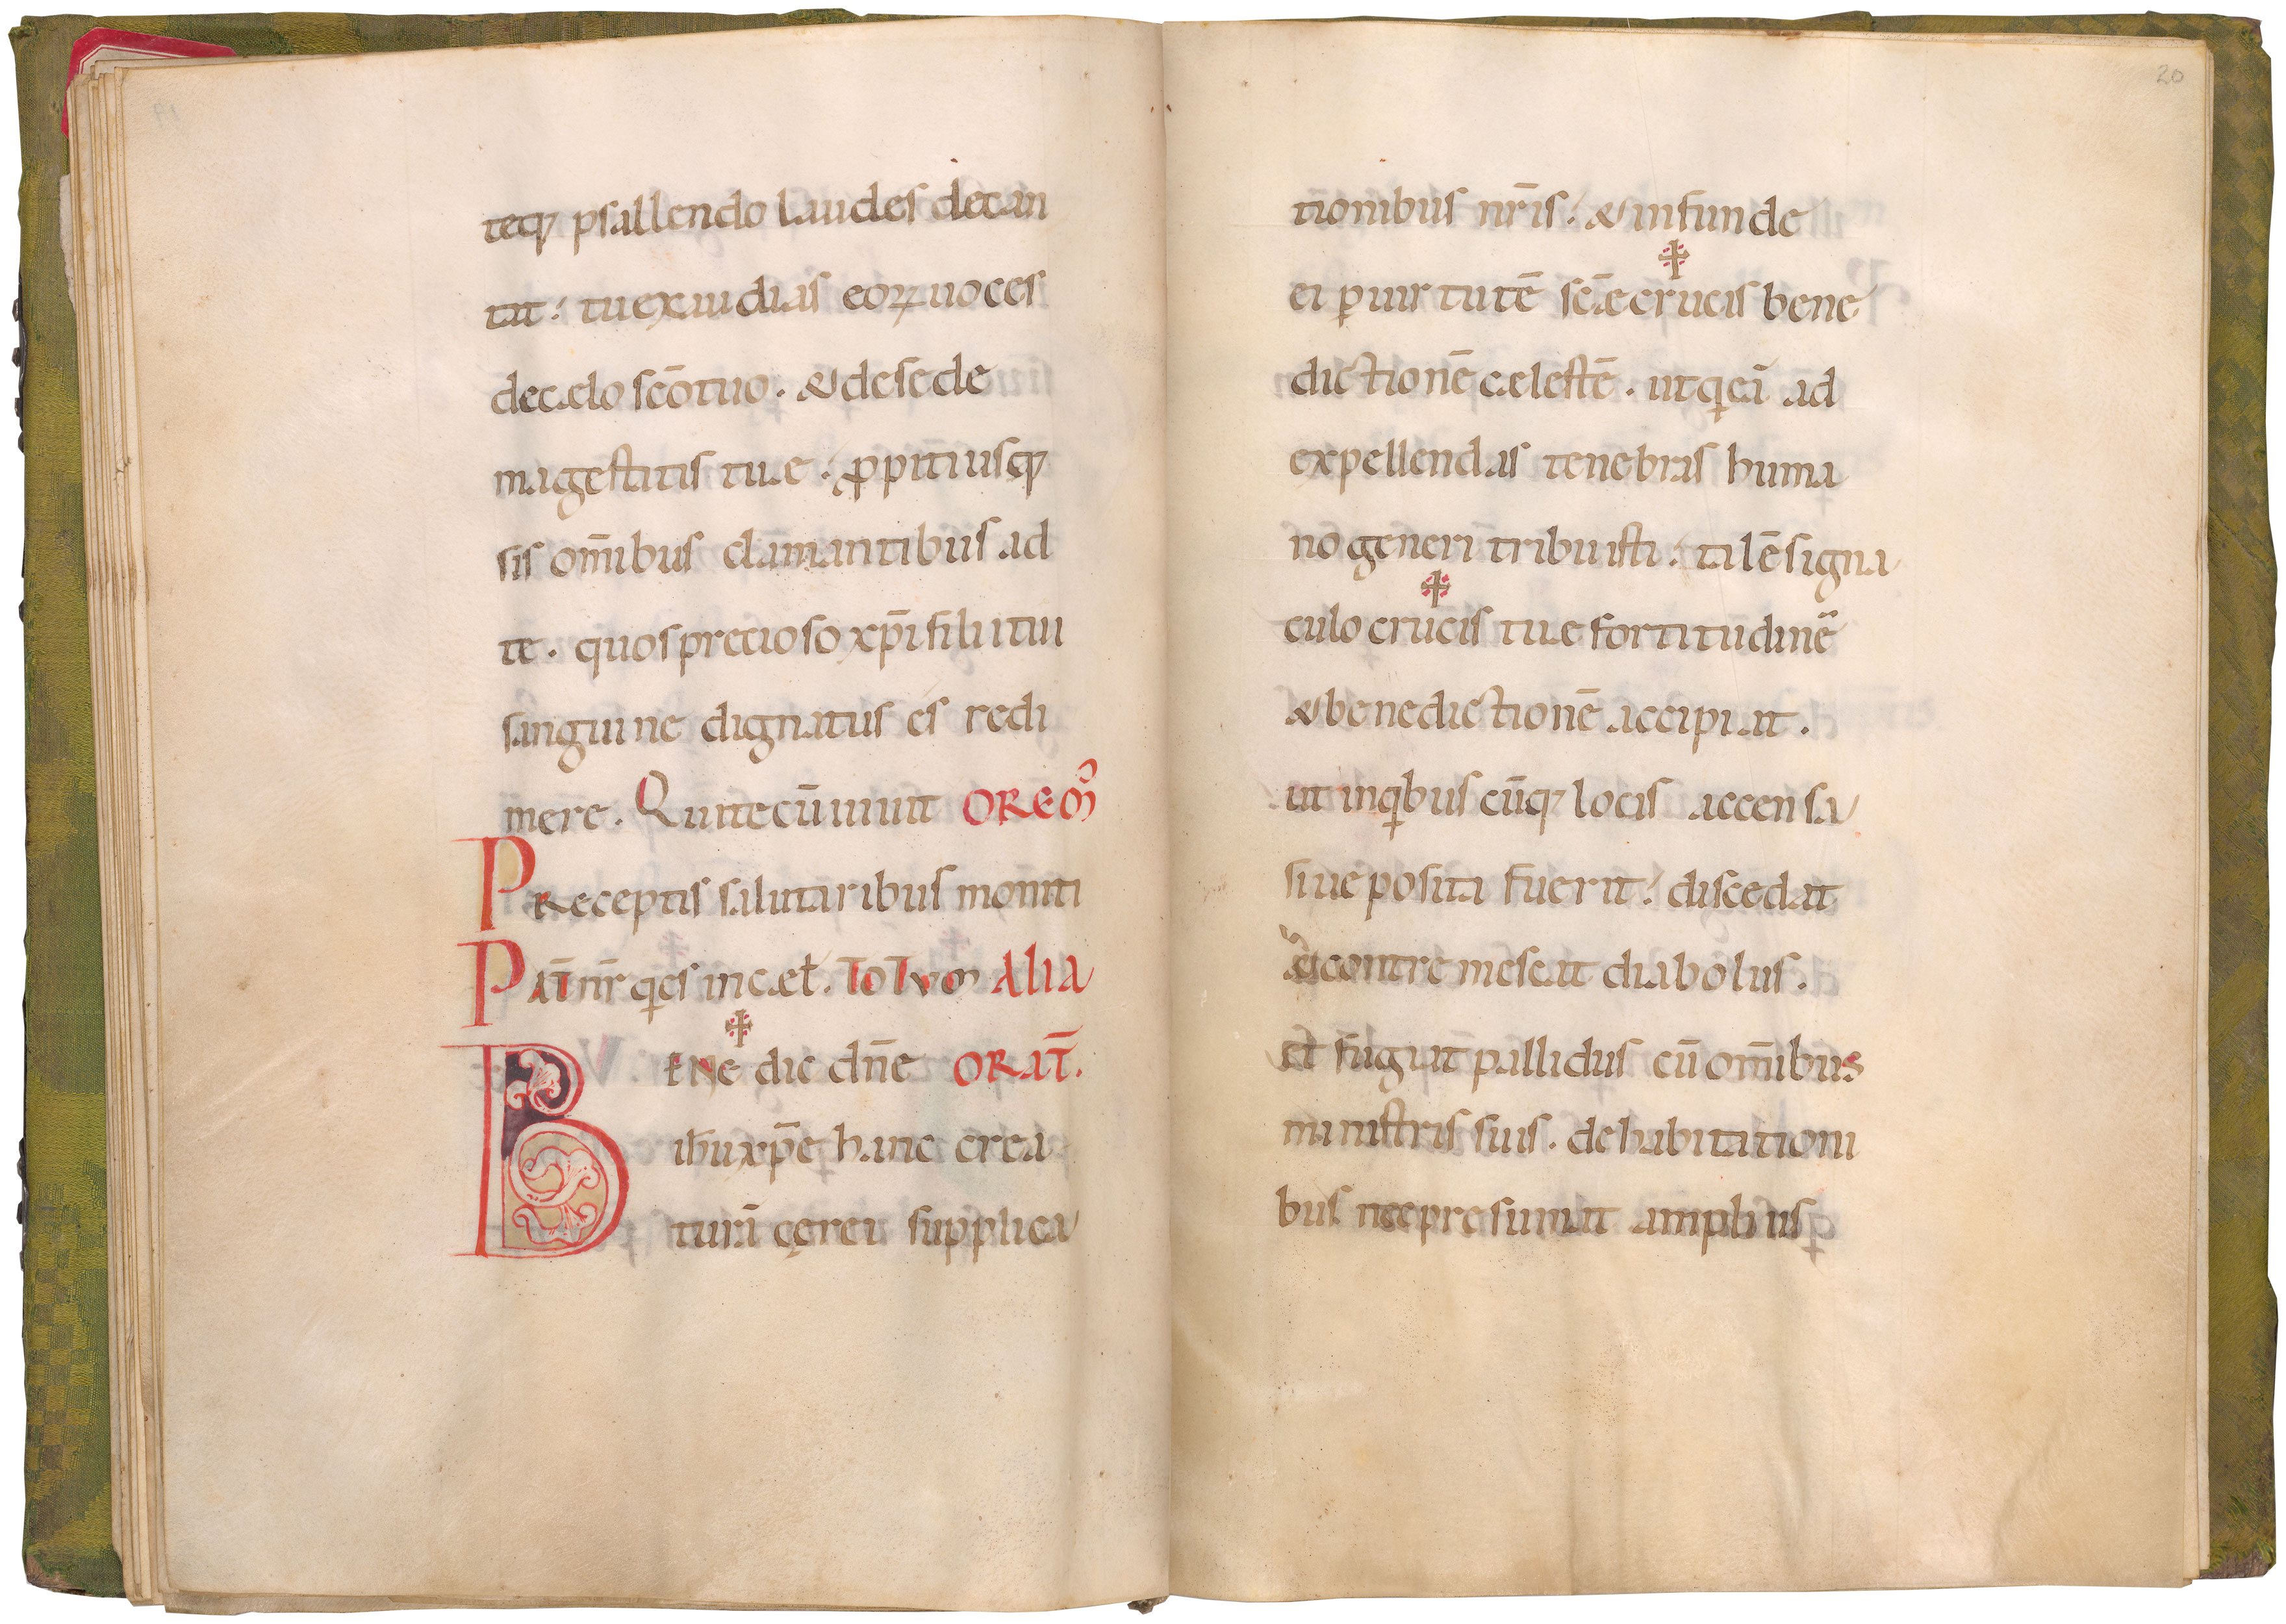 teq; psallendo laudes decan
tat: tu exaudias eoꝝ uoces
de cælo sc̄o tuo. & de sede
magestatis tuæ. ꝓpitiusq;
sis om̄ibus clamantibus ad
te. quos precioso xp̄i filii tui
sanguine dignatus es redi
mere. Qui tecū uiuit OREM̄
PReceptis salutaribus moniti
PAT̄ nr̄ q̄ es in cæl. TOTVM ALIA
✠
BENEdic dn̄e ORAT̄.
ih̄u xp̄e hanc crea
turā cęrei supplica
20
tionibus nr̄is. & infunde
✠
ei ꝑ uirtutē sc̄æ crucis bene
dictionē cælestē. ut q̄ eā ad
expellendas tenebras huma
no generi tribuisti. talē signa
✠
culo crucis tuæ fortitudinē
& benedictionē accipiat.
ut in q̄bus cūq; locis accensa
siue posita fuerit: discedat
& contremescat diabolus.
et fugiat pallidus cū om̄ibus
ministris suis. de habitationi
bus nec presumat amplius